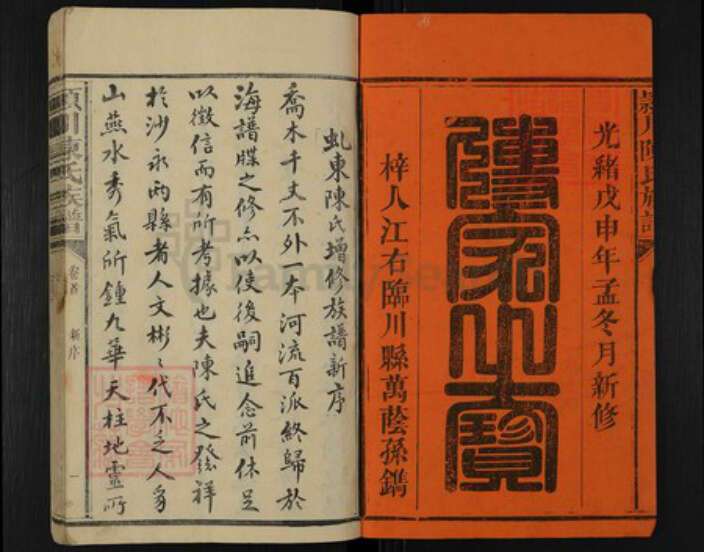 穎川陳氏族譜
光緒戊申年孟冬月新修
陳家之寶
梓人江右臨川縣萬蔭孫鐫
虬東陳氏增修族譜新序
喬木千丈不外一本河流百派終歸於
海譜牒之修亦以使後嗣追念前休足
以徵信而有所考據也夫陳氏之發祥
於沙永兩縣者人文彬彬代不乏人良
山燕水秀氣所鍾九華天柱地靈所
潁川陳氏族譜
卷首 新序
一